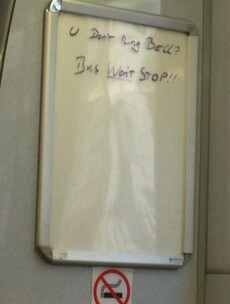 U Don't Ring Bell?
Bus Won't STOP!!